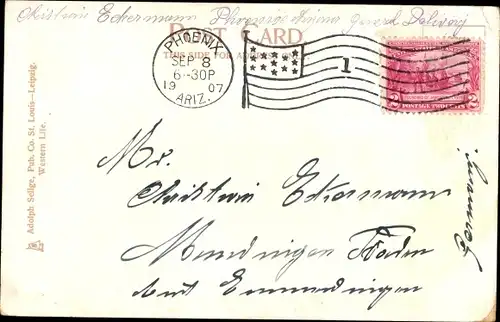 Christian Eckermann Phoenix Arizona general Delivery
POST CARD
THIS SIDE FOR ADDRESS ONLY.
PHOENIX
SEP 8
6-30P
1907
ARIZ.
1
POSTAGE TWO CENTS
2 2
Adolph Selige, Pub. Co. St. Louis—Leipzig.
Western Life.
Mr.
Christian Eckermann
Mundingen Baden
Amt Emmendingen
Germany